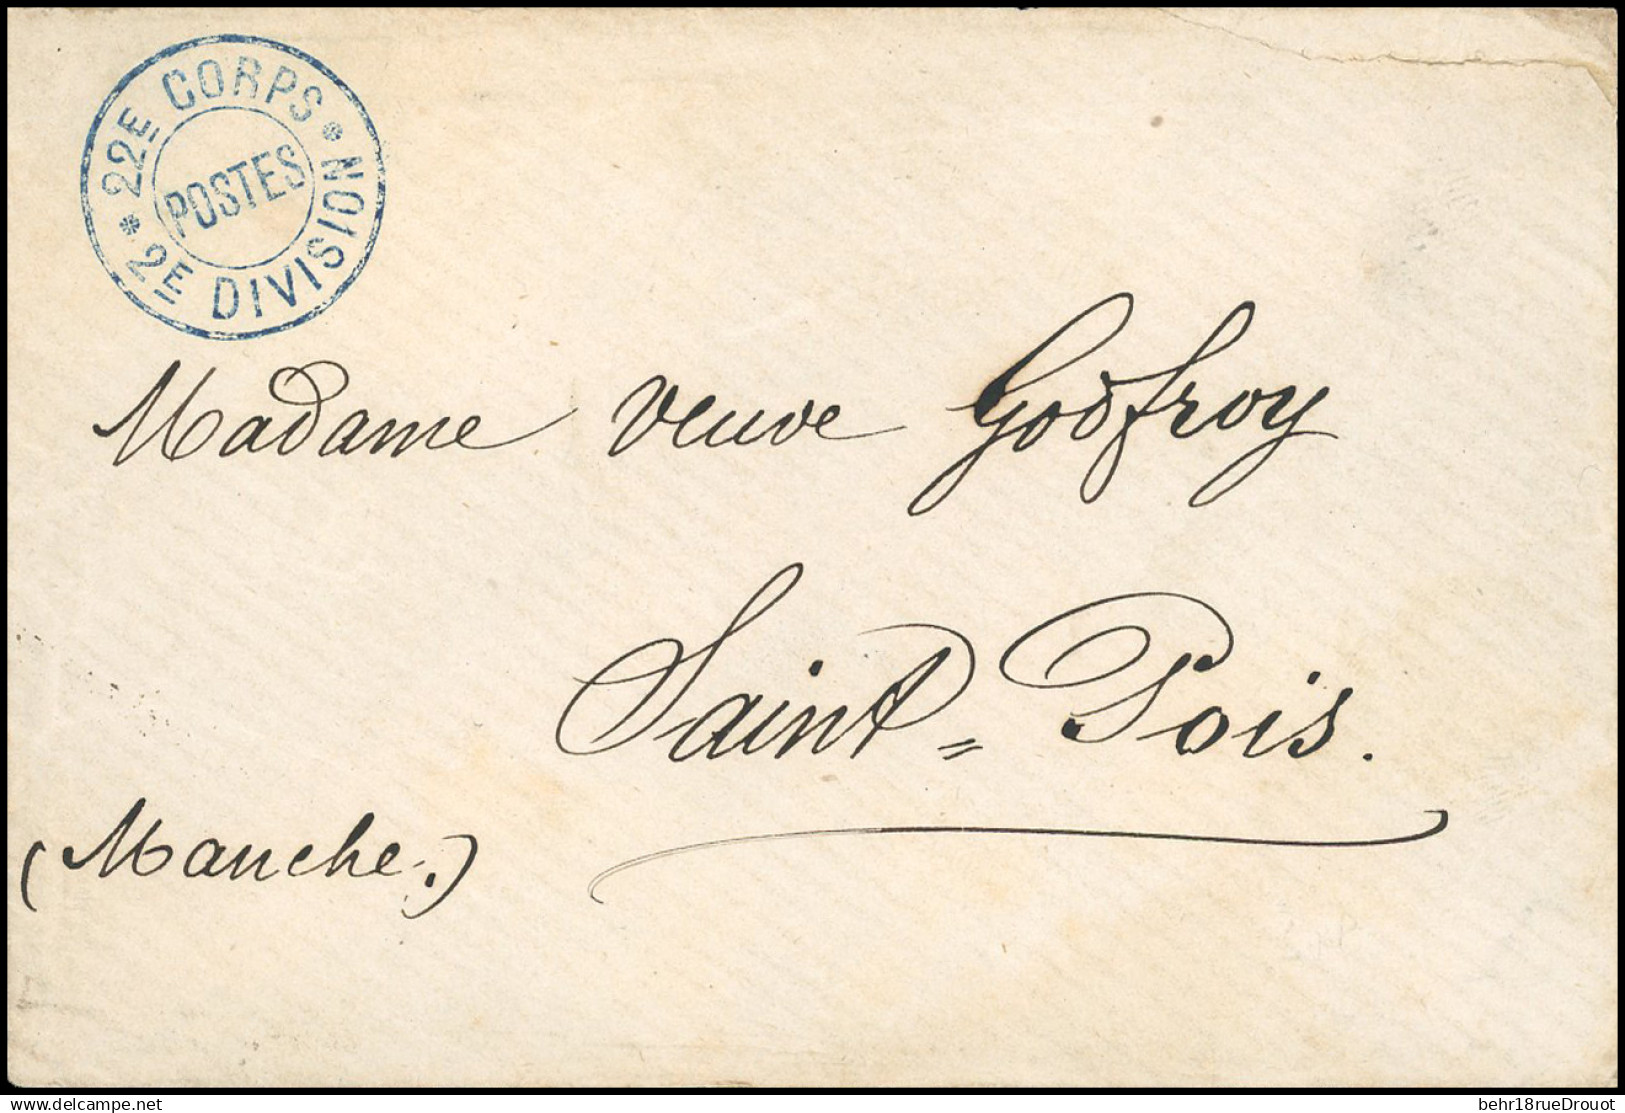 * 22E CORPS *
POSTES
2E DIVISION
Madame veuve Godfroy
Saint=Pois.
(Manche.)
www.delcampe.net
behr18rueDrouot